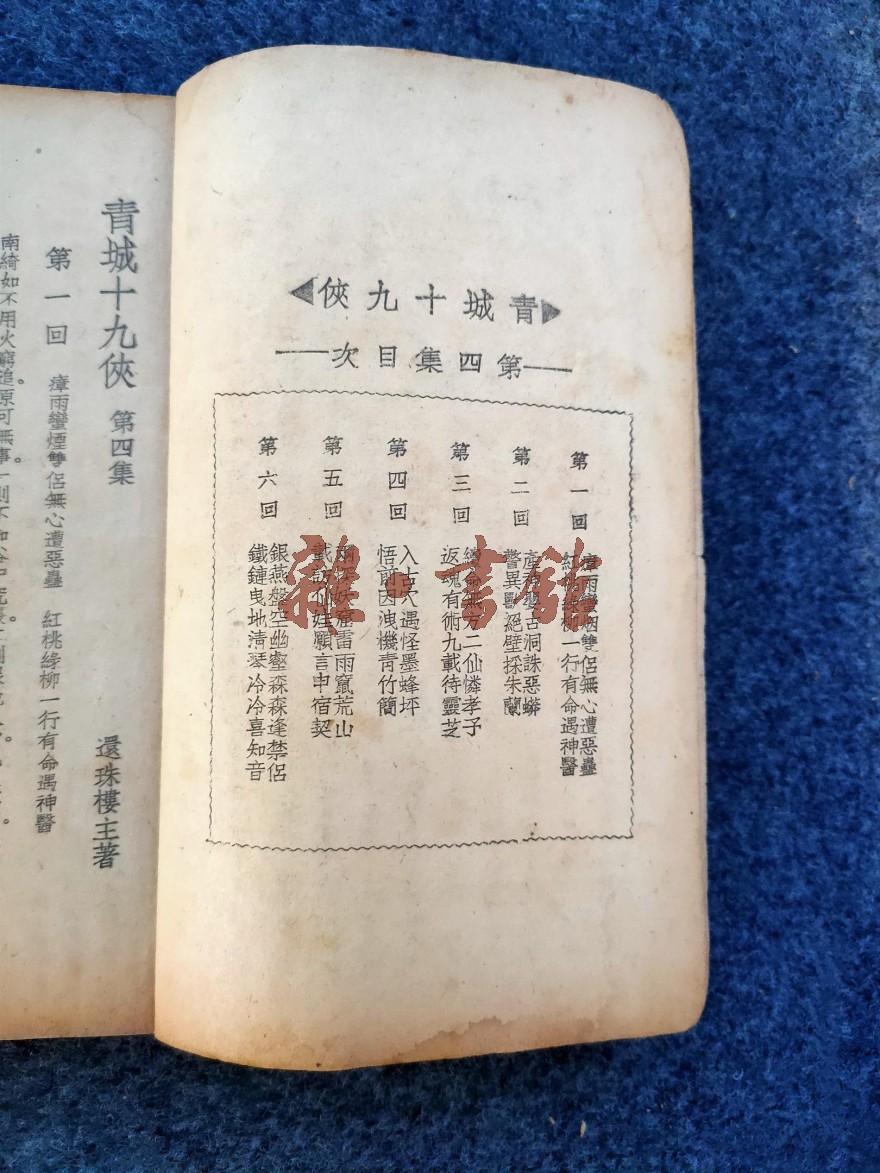 青城十九俠
第四集目次
第一回
瘴雨蠻烟雙侶無心遭惡蠱
紅桃綠柳一行有命遇神醫
第二回
產靈嬰古洞誅惡蟒
警異獸絕壁採朱蘭
第三回
續命無方二仙憐孝子
返魂有術九載待靈芝
第四回
入古穴遇怪墨蜂坪
悟前因洩機青竹簡
第五回
兩探妖窟雷雨竄荒山
載訪仙娃願言申宿契
第六回
銀燕盤空幽壑森森逢禁侶
鐵鏈曳地清琴冷冷喜知音
雜書館
青城十九俠 第四集 還珠樓主著
第一回 瘴雨蠻煙雙侶無心遭惡蠱 紅桃綠柳一行有命遇神醫
南綺如不用火窮追。原可無事。一則不